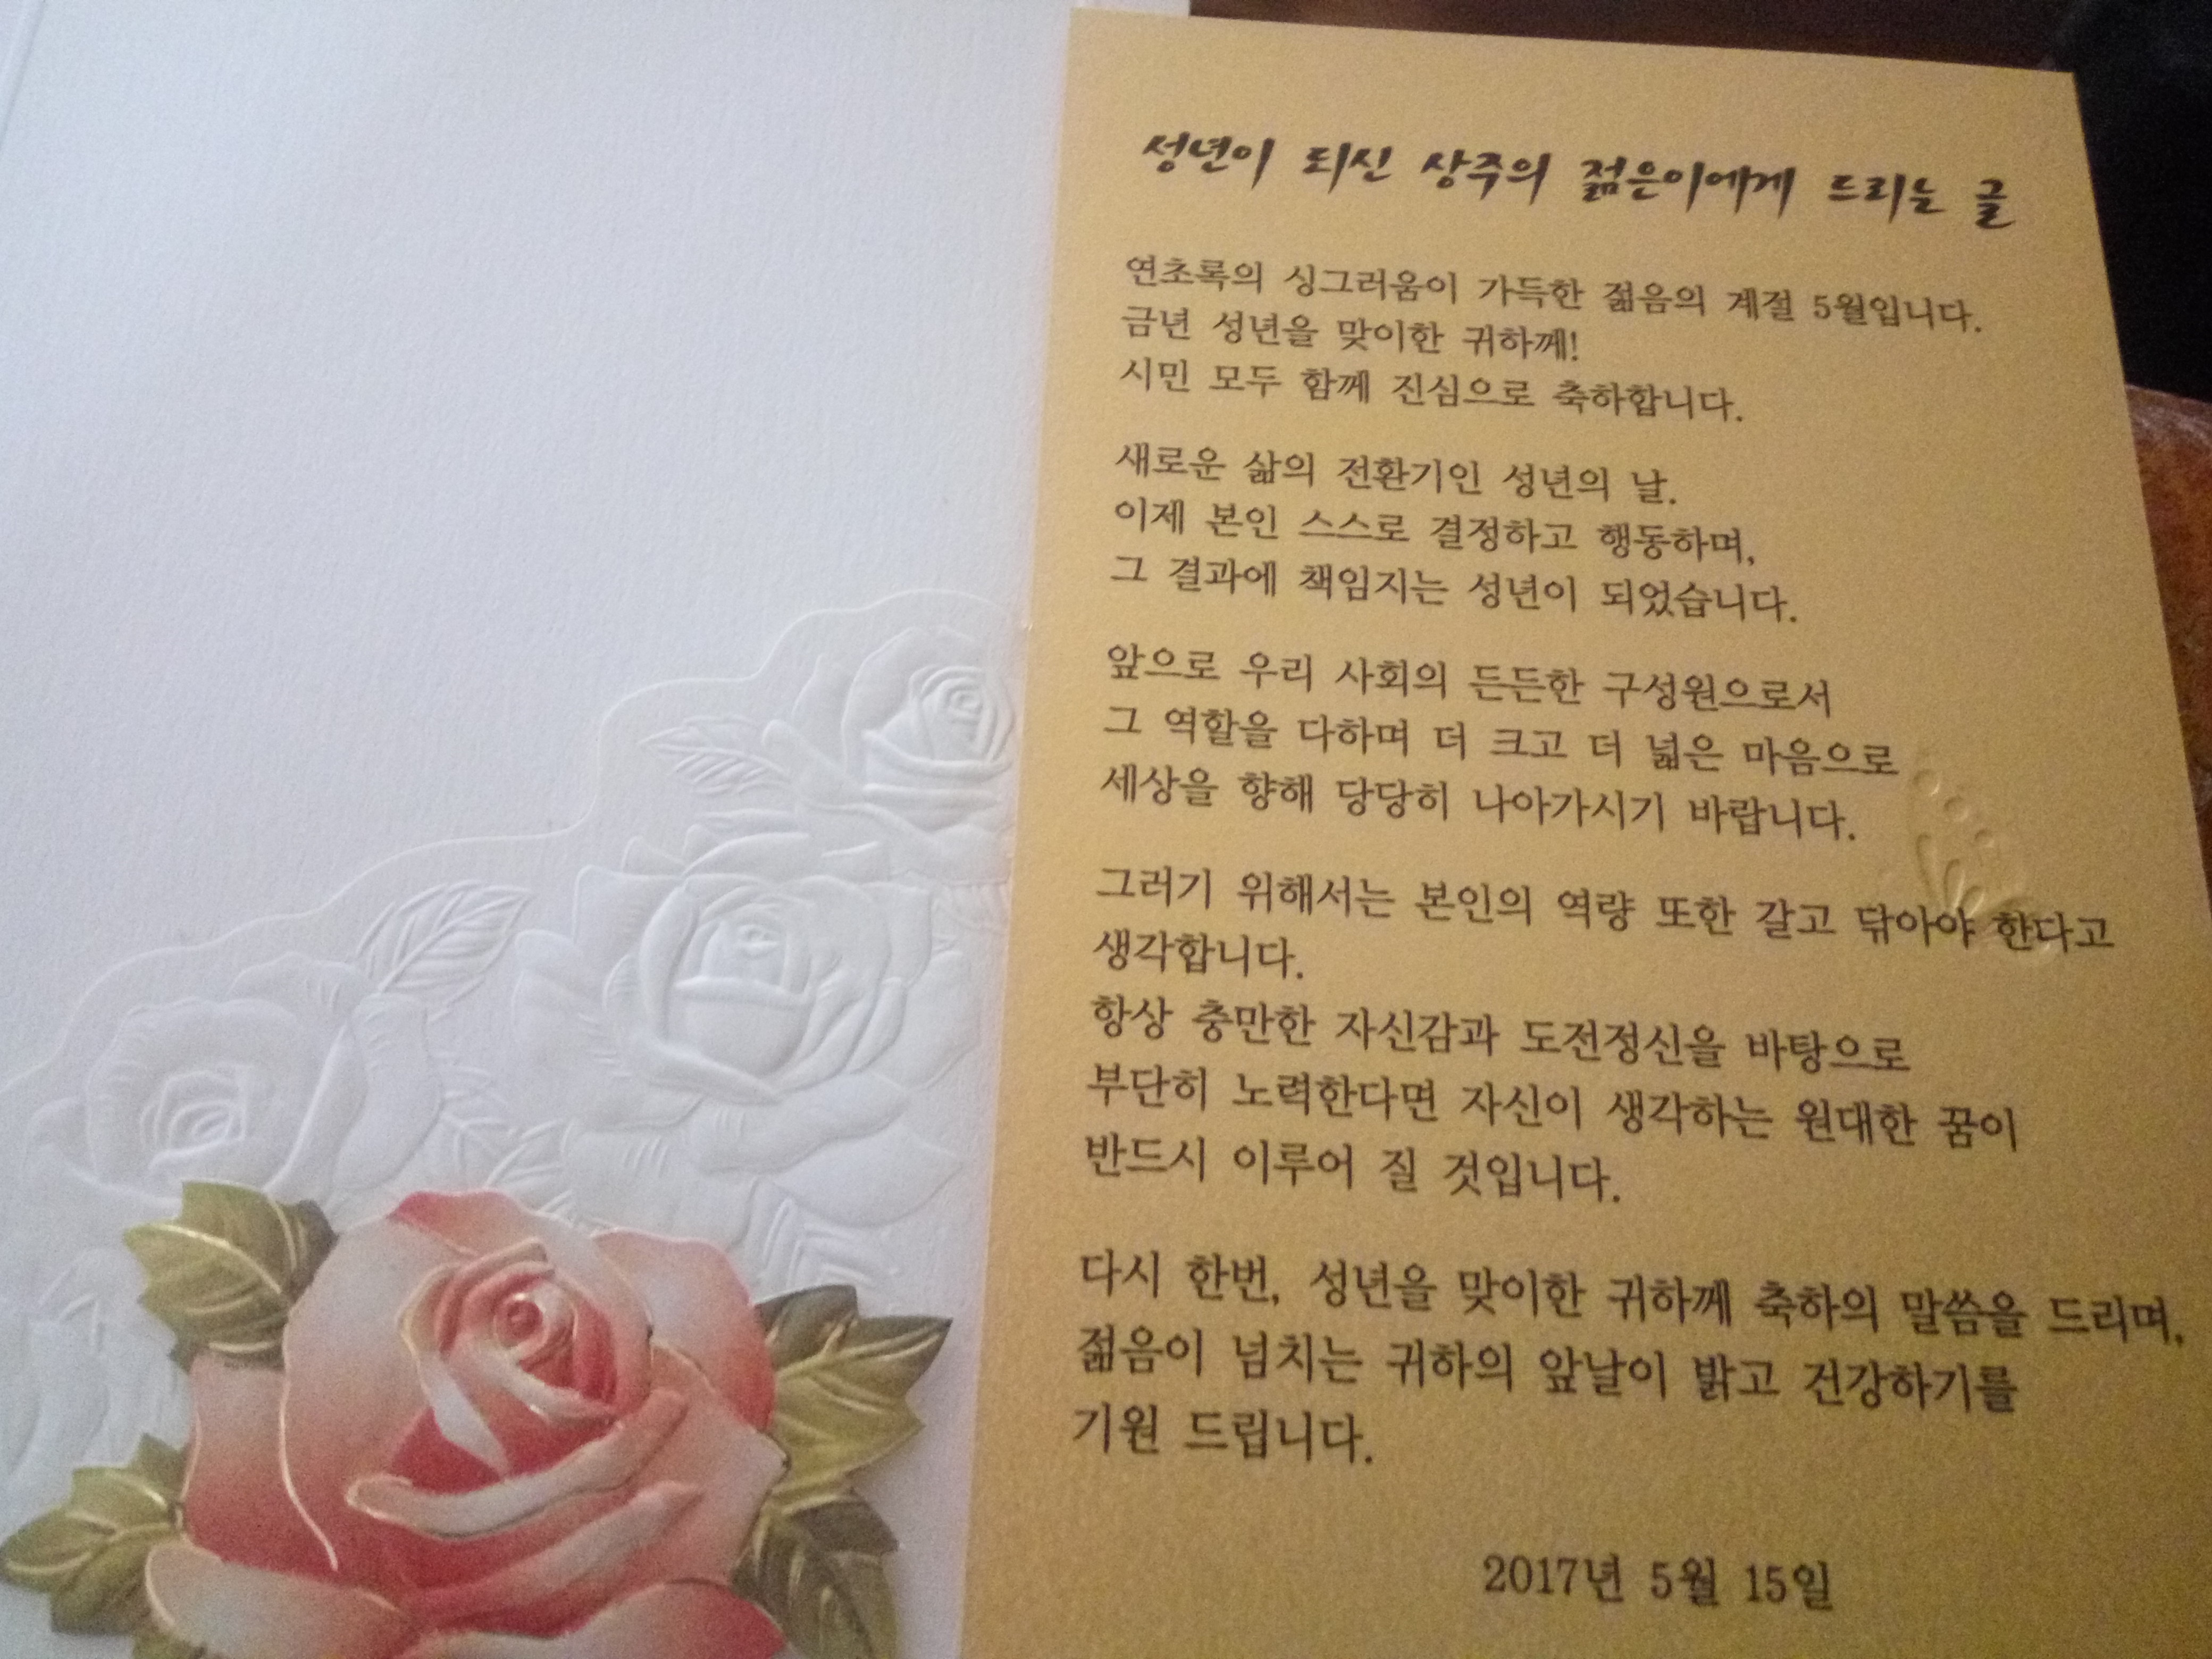 성년이 되신 상주의 젊은이에게 드리는 글
연초록의 싱그러움이 가득한 젊음의 계절 5월입니다.
금년 성년을 맞이한 귀하께!
시민 모두 함께 진심으로 축하합니다.
새로운 삶의 전환기인 성년의 날.
이제 본인 스스로 결정하고 행동하며,
그 결과에 책임지는 성년이 되었습니다.
앞으로 우리 사회의 든든한 구성원으로서
그 역할을 다하며 더 크고 더 넓은 마음으로
세상을 향해 당당히 나아가시기 바랍니다.
그러기 위해서는 본인의 역량 또한 갈고 닦아야 한다고
생각합니다.
항상 충만한 자신감과 도전정신을 바탕으로
부단히 노력한다면 자신이 생각하는 원대한 꿈이
반드시 이루어 질 것입니다.
다시 한번, 성년을 맞이한 귀하께 축하의 말씀을 드리며,
젊음이 넘치는 귀하의 앞날이 밝고 건강하기를
기원 드립니다.
2017년 5월 15일